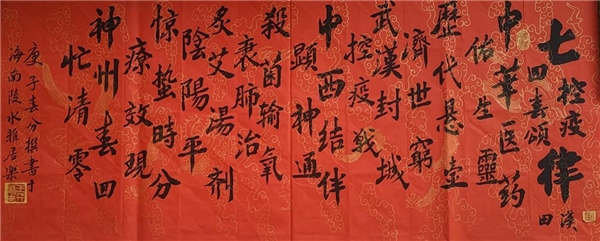 七律
控疫
回春頌
漢田
中華医药
佑生靈
歷代悬壶
濟世窮
武漢封城
控疫戰
中西结伴
顕神通
殺菌输氧
衰肺治
炙艾湯剂
陰陽平
惊蛰時分
療效現
神州春回
忙靖零
庚子春分撰書于
海南陵水雅居樂